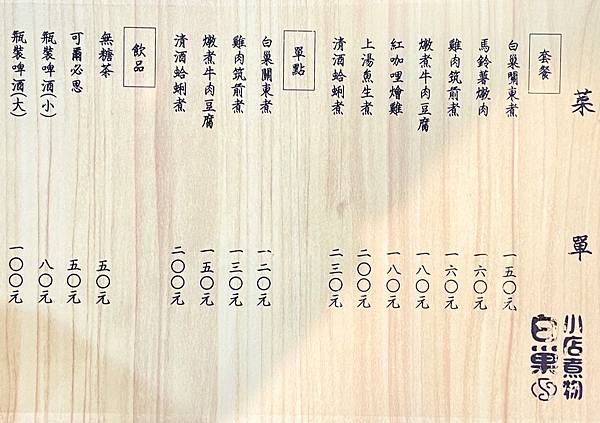 菜單
小店煮物
白巢
套餐
白巢關東煮 一五〇元
馬鈴薯燉肉 一六〇元
雞肉筑前煮 一六〇元
燉煮牛肉豆腐 一八〇元
紅咖哩燴雞 一八〇元
上湯魚生煮 二〇〇元
清酒蛤蜊煮 二三〇元
單點
白巢關東煮 一二〇元
雞肉筑前煮 一三〇元
燉煮牛肉豆腐 一五〇元
清酒蛤蜊煮 二〇〇元
飲品
無糖茶 五〇元
可爾必思 五〇元
瓶裝啤酒(小) 八〇元
瓶裝啤酒(大) 一〇〇元